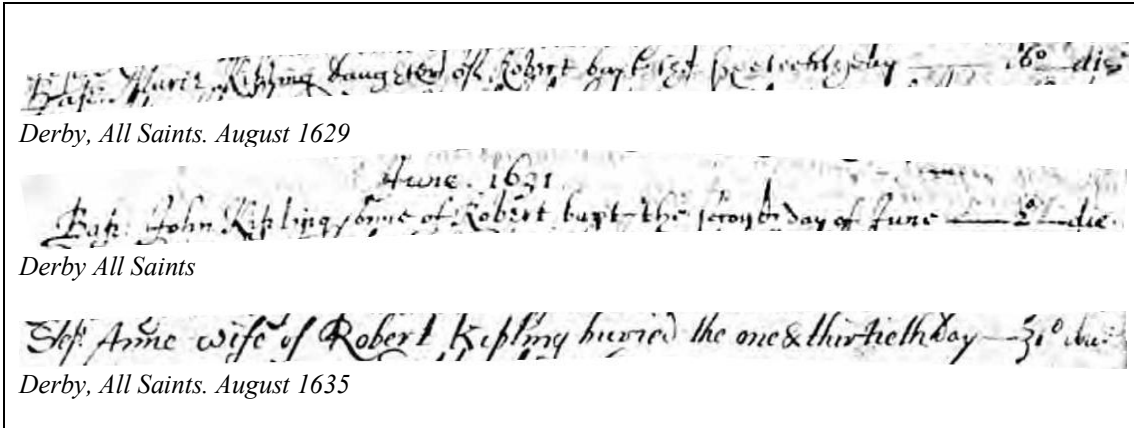 Bap: Marie Kipling daughter of Robert bapt the sixteenth day 16° die
Derby, All Saints. August 1629
June. 1631
Bap: John Kipling sonne of Robert bapt the second day of June 2° die.
Derby All Saints
Sep: Anne wife of Robert Kipling buried the one & thirtieth day 31°
Derby, All Saints. August 1635